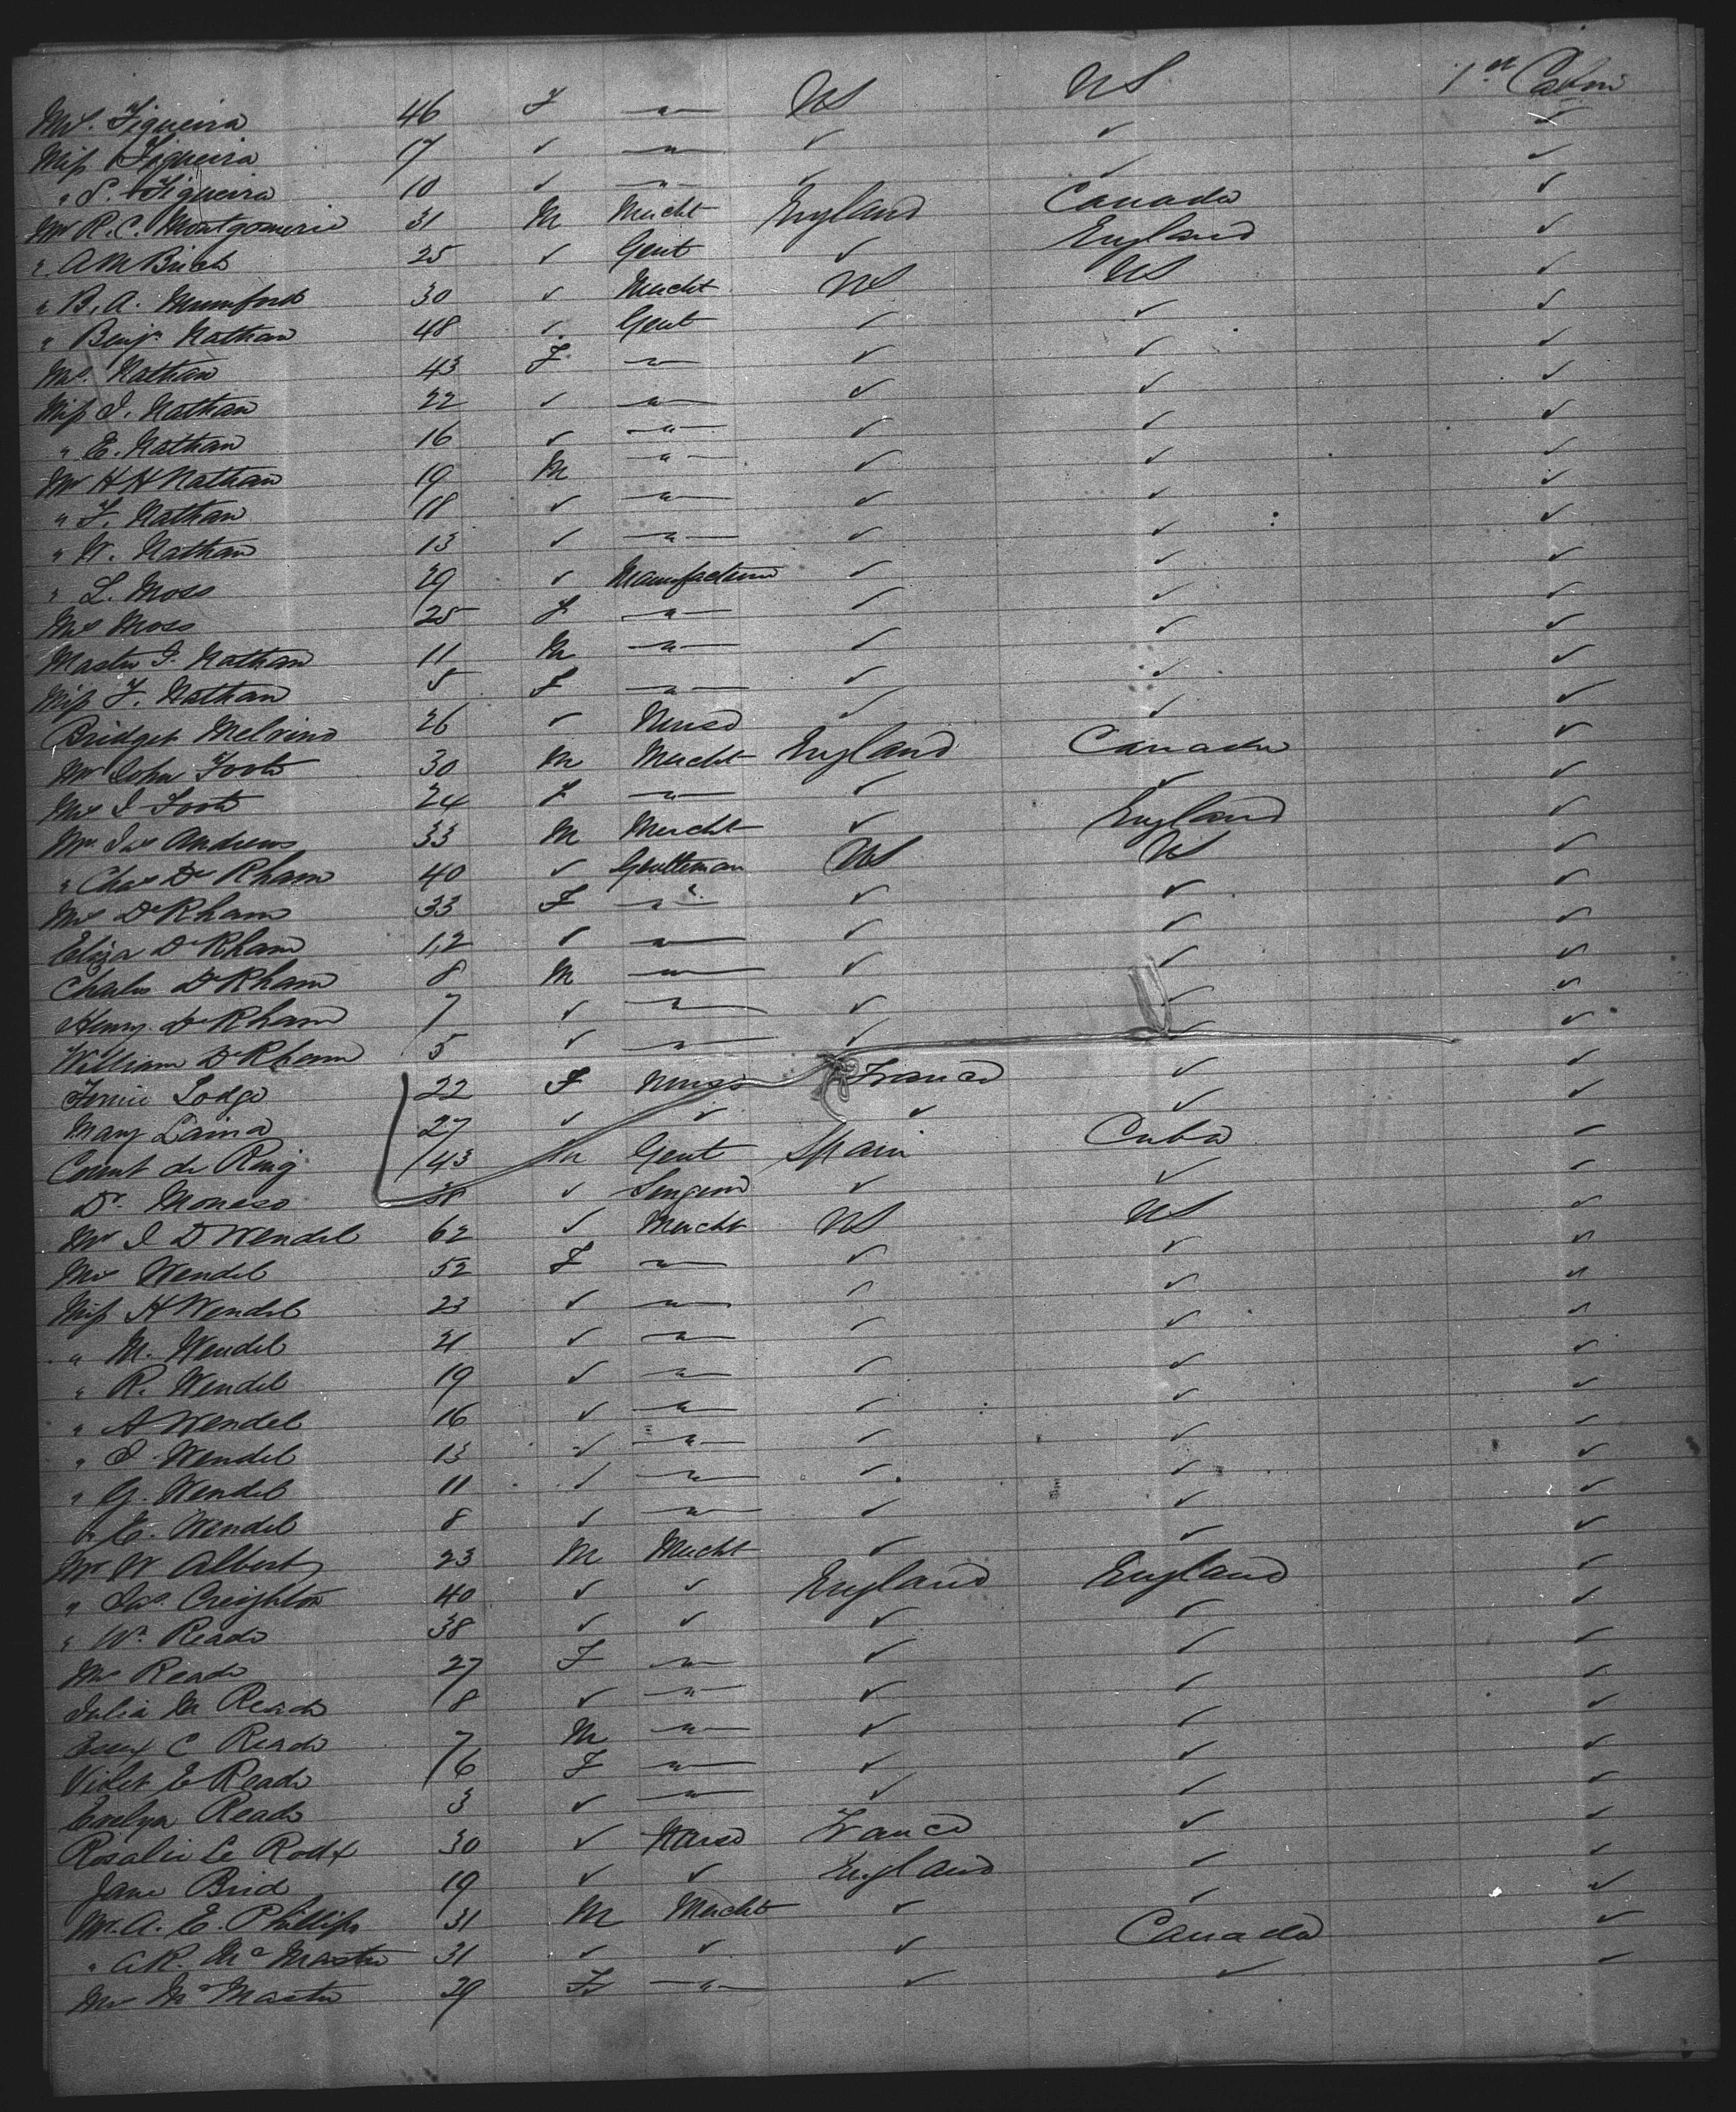 Mrs. Figueira 46 F —"— US US 1st Cabin
Miss Figueira 17 ✓ —"— ✓ ✓ ✓
" S. Figueira 10 ✓ —"— ✓ ✓ ✓
Mr R. C. Montgomerie 31 M Mercht England Canada ✓
" A M Birch 25 ✓ Gent ✓ England ✓
" B. A. Mumford 30 ✓ Mercht US US ✓
" Benj. Nathan 48 ✓ Gent ✓ ✓ ✓
Mrs. Nathan 43 F —"— ✓ ✓ ✓
Miss J. Nathan 22 ✓ —"— ✓ ✓ ✓
" E. Nathan 16 ✓ —"— ✓ ✓ ✓
Mr H H Nathan 19 M —"— ✓ ✓ ✓
" F. Nathan 18 ✓ —"— ✓ ✓ ✓
" W. Nathan 13 ✓ —"— ✓ ✓ ✓
" L. Moss 29 ✓ Manufacturer ✓ ✓ ✓
Mrs Moss 25 F —"— ✓ ✓ ✓
Master G. Nathan 11 M —"— ✓ ✓ ✓
Miss F. Nathan 5 F —"— ✓ ✓ ✓
Bridget 26 ✓ Nurse ✓ ✓ ✓
Mr John Foote 30 M Mercht England Canada ✓
Mrs J Foote 24 F —"— ✓ ✓ ✓
Mr. Jas Andrews 33 M Mercht ✓ England ✓
" Chas De Rham 40 ✓ Gentleman US US ✓
Mrs De Rham 33 F —"— ✓ ✓ ✓
Eliza De Rham 12 ✓ —"— ✓ ✓ ✓
Charles De Rham 8 M —"— ✓ ✓ ✓
Henry De Rham 7 ✓ —"— ✓ ✓ ✓
William De Rham 5 ✓ —"— ✓ ✓ ✓
Lodge 22 F Nurse France ✓ ✓
Mary 27 ✓ ✓ ✓ ✓ ✓
Count de 43 M Gent Spain Cuba ✓
Dr. Moneso ✓ Surgeon ✓ ✓ ✓
Mr J D Wendel 62 ✓ Mercht US US ✓
Mrs Wendel 52 F —"— ✓ ✓ ✓
Miss H Wendel 23 ✓ —"— ✓ ✓ ✓
" M. Wendel 21 ✓ —"— ✓ ✓ ✓
" R. Wendel 19 ✓ —"— ✓ ✓ ✓
" A Wendel 16 ✓ —"— ✓ ✓ ✓
" J Wendel 13 ✓ —"— ✓ ✓ ✓
" G. Wendel 11 ✓ —"— ✓ ✓ ✓
" E. Wendel 8 ✓ —"— ✓ ✓ ✓
Mr W Albert 23 M Mercht ✓ ✓ ✓
" Jas. Creighton 40 ✓ ✓ England England ✓
" Wm Reade 38 ✓ ✓ ✓ ✓ ✓
Mrs Reade 27 F —"— ✓ ✓ ✓
Julia M Reade 8 ✓ —"— ✓ ✓ ✓
Essex C Reade 7 M —"— ✓ ✓ ✓
Violet E Reade 6 F —"— ✓ ✓ ✓
Evelyn Reade 3 ✓ —"— ✓ ✓ ✓
Rosalie Le 30 ✓ Nurse France ✓ ✓
Jane Bird 19 ✓ ✓ England ✓ ✓
Mr. A. E. Phillips 31 M Mercht ✓ ✓ ✓
" A R. Mc Master 31 ✓ ✓ ✓ Canada ✓
Mrs Mc Master 29 F —"— ✓ ✓ ✓